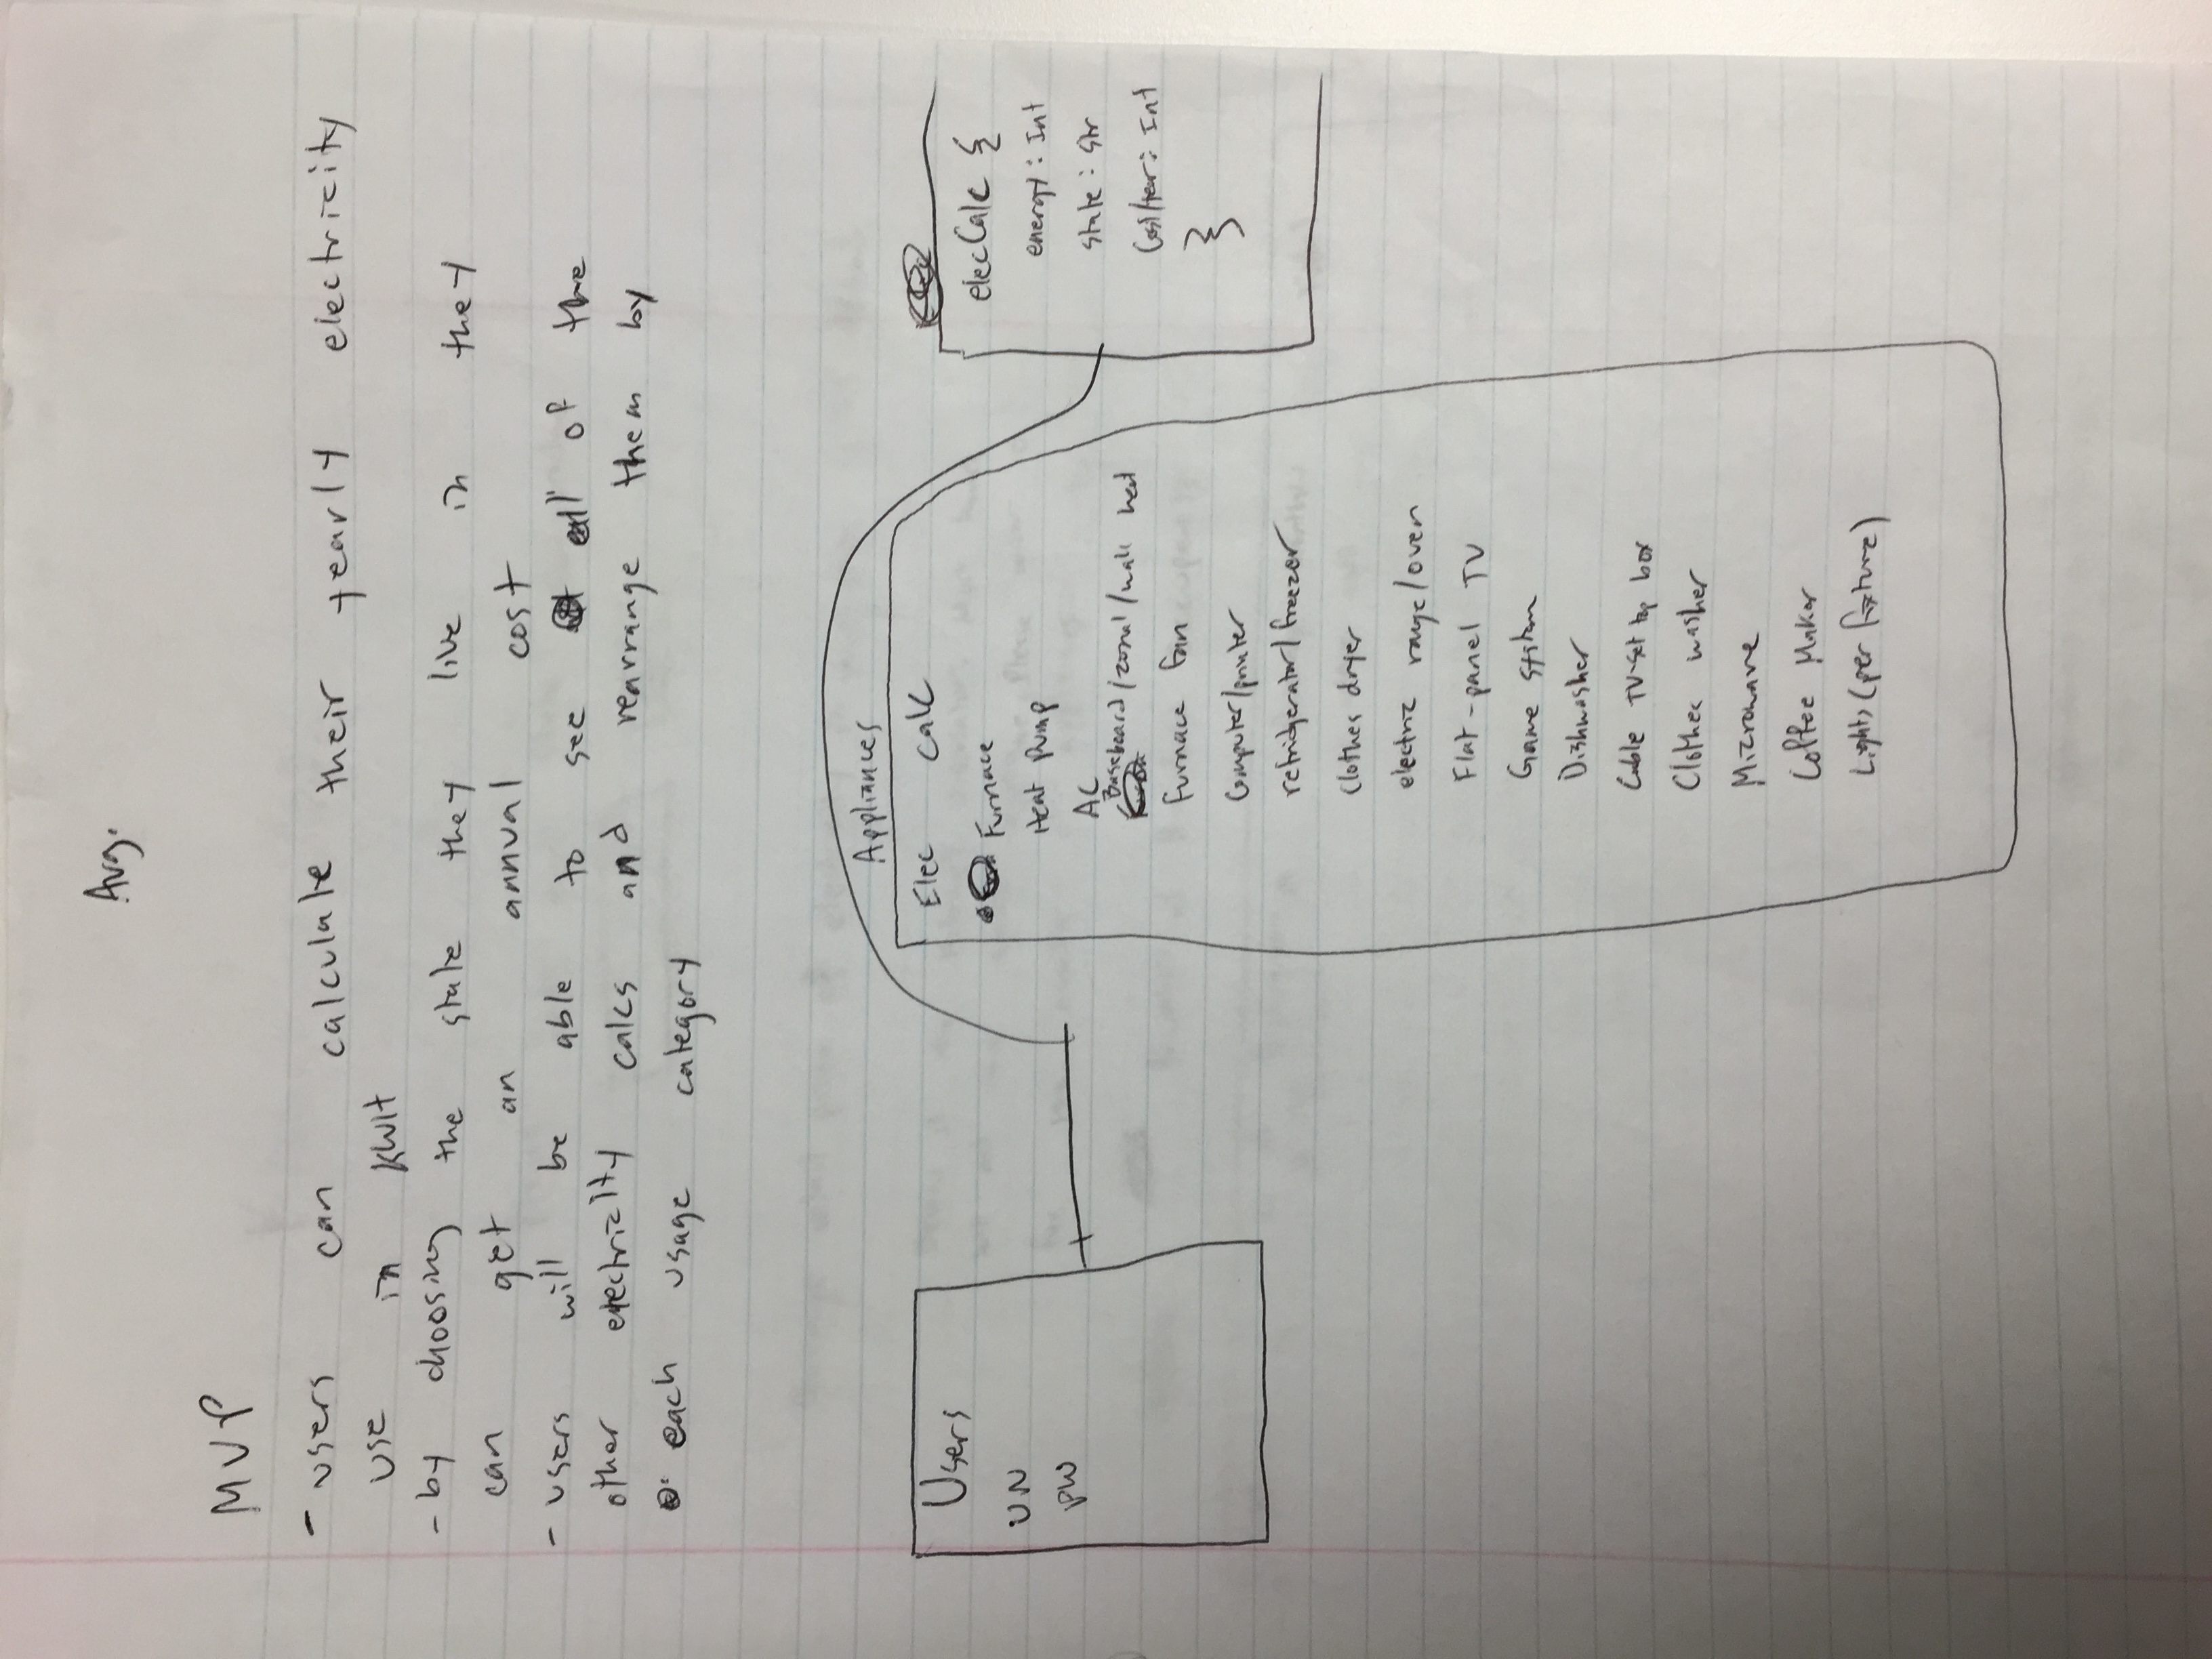 Avg.
MVP
- users can calculate their yearly electricity
use in KWH
- by choosing the state they live in they
can get an annual cost
- users will be able to see all of the
other electricity calcs and rearrange them by
each usage category
Users
UN
PW
Appliances
Elec Calc
Furnace
Heat Pump
AC
Baseboard/zonal/wall heat
Furnace fan
Computer/printer
refridgerator/freezer
Clothes dryer
electric range/oven
Flat-panel TV
Game system
Dishwasher
Cable TV-set top box
Clothes washer
Microwave
Coffee Maker
Lights (per fixture)
elecCalc {
energy: Int
state: Str
Cost/Year: Int
}